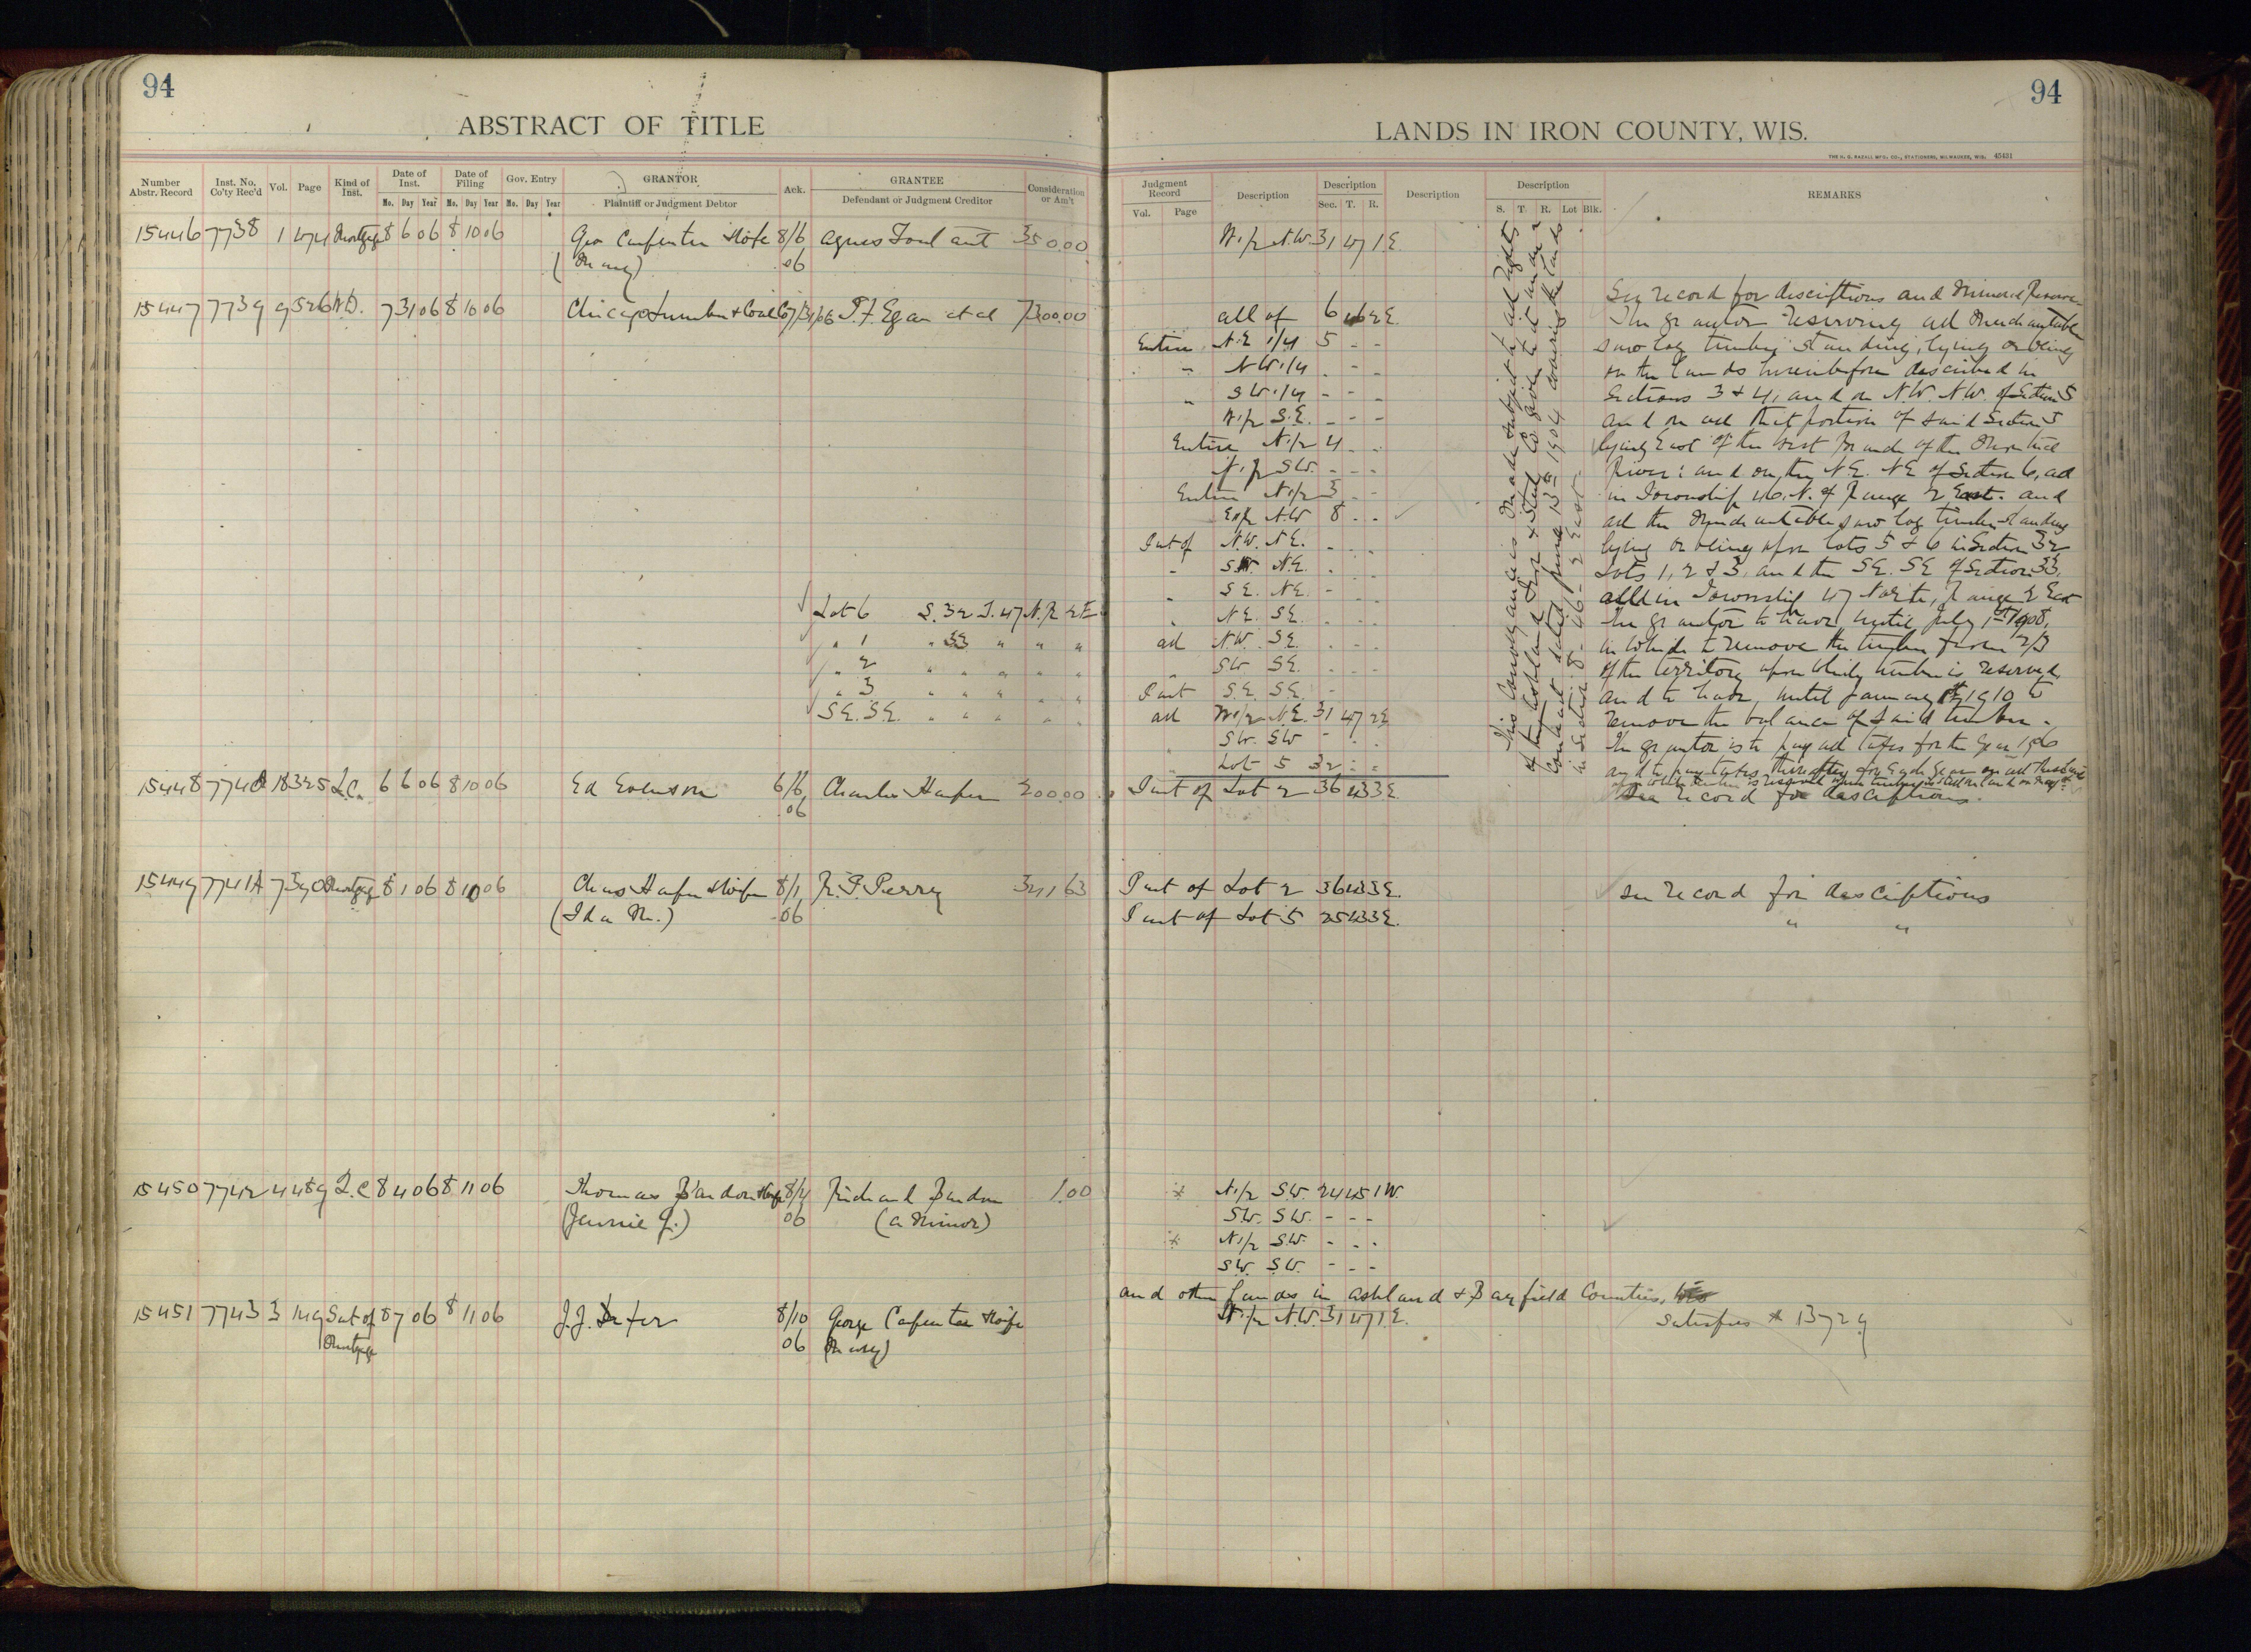 94
ABSTRACT OF TITLE
Number Abstr. Record
Inst. No. Co'ty Rec'd
Vol.
Page
Kind of Inst.
Date of Inst.
Mo. Day Year
Date of Filing
Mo. Day Year
Gov. Entry
Mo. Day Year
GRANTOR
Plaintiff or Judgment Debtor
Ack.
GRANTEE
Defendant or Judgment Creditor
Consideration or Am't
15446 7738 1 474 Mortgage 8 6 06 8 10 06 Geo Carpenter & Wife 8/6 Agnes 350.00
(Mary) 06
15447 7739 9 526 W.D. 7 31 06 8 10 06 Chicago Lumber & Coal Co 7/31/06 T. F. Egan et al 7300.00
Lot 6 S. 32 T. 47 N. R 2 E
" 1 " 33 " " "
" 2 " " " " "
" 3 " " " " "
S.E. S.E. " " " " "
15448 7740 18 325 L.C. 6 6 06 8 10 06 Ed Evenson 6/6 Charles Harper 200.00
06
15449 7741A 7 390 Mortgage 8 1 06 8 10 06 Chas Harper & Wife 8/1 R. P. Perry 341 63
(Ida M.) 06
15450 7742 4 489 Q.C 8 4 06 8 11 06 Thomas Bardon & Wife 8/4 Richard Bardon 1.00
(Jennie G.) 06 (a Minor)
15451 7743 3 149 Sat of 8 7 06 8 11 06 J. J. 8/10 George Carpenter & Wife
Mortgage 06 (Mary)
94
LANDS IN IRON COUNTY, WIS.
THE H. G. RAZALL MFG. CO., STATIONERS, MILWAUKEE, WIS. 45431
Judgment Record
Vol. Page
Description
Description
Sec. T. R.
Description
Description
S. T. R. Lot Blk.
REMARKS
W1/2 N.W. 31 47 1 E.
all of 6 46 2 E.
Entire N.E 1/4 5 - -
" N W. 1/4 - - -
" S W. 1/4 - - -
W1/2 S.E. - - -
Entire N1/2 4 - -
N1/2 S.W. - - -
Entire N1/2 3 - -
E1/2 N.W 8 - -
Part of N.W. N.E. - - -
" S.W. N.E. - - -
" S.E. N.E. - - -
" N.E. S.E. - - -
all N.W. S.E. - - -
" S.W S.E. - - -
Part S.E. S.E. -
all W1/2 N.E. 31 47 2 E
" S.W. S.W - - -
Lot 5 32 - -
Part of Lot 2 36 43 3 E.
Part of Lot 2 36 43 3 E.
Part of Lot 5 25 43 3 E.
* N1/2 S.W. 24 45 1 W.
S.W. S.W. - - -
* N1/2 S.W. - - -
S.W. S.W. - - -
and other lands in Ashland & Bayfield Counties, Wis
W1/2 N.W. 31 47 1 E.
This conveyance is made subject to all rights
of the Ashland Iron & Steel Co
contract dated June 13th 1904 covering the lands
in Section 8 - 46 - 2 East
See record for descriptions and Mineral Reserve
The grantor reserving all Merchantable
saw log timber standing, lying or being
on the lands hereinbefore described in
Sections 3 & 4, and on N.W. N.W. of Section 5
and on all that portion of said Section 5
lying East of the West Branch of the Montreal
River: and on the N.E. N E of Section 6, all
in Township 46. N. of Range 2 East. and
all the Merchantable saw log timber standing
lying or being upon lots 5 & 6 in Section 32
Lots 1, 2 & 3, and the S.E. S.E of Section 33,
all in Township 47 North, Range 2 East
The grantor to have until July 1st 1908,
in which to remove the timber from 2/3
of the territory upon which timber is reserved,
and to have until January 1st 1910 to
remove the balance of said timber.
The grantor is to pay all taxes for the year 1906
and to pay taxes thereafter for each year on all these lands
See record for descriptions.
See record for descriptions
" "
Satisfies * 13729